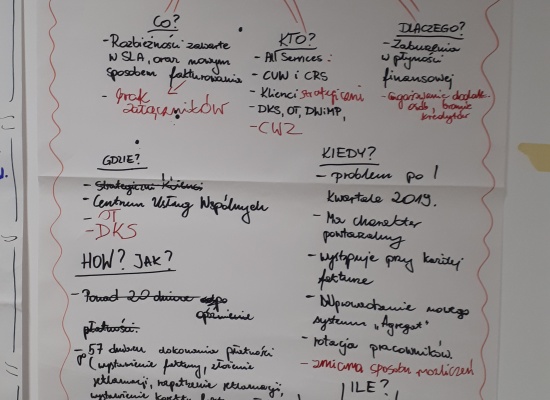 CO?
- Rozbieżności zawarte
w SLA, oraz nowym
sposobem fakturowania
- brak
załączników
KTO?
- AllServices:
- CUW i CRS
- Klienci strategiczni
- DKS, OT, DWiMP,
- CWZ
DLACZEGO?
- Zaburzenia
w płynności
finansowej
- angażowanie dodatk.
osób, branie
kredytów
GDZIE?
- strategiczni Klienci
- Centrum Usług Wspólnych
- OT
- DKS
KIEDY?
- problem po I
kwartale 2019.
- Ma charakter
powtarzalny
- występuje przy każdej
fakturze
- Wprowadzenie nowego
systemu "Agregat"
- rotacja pracowników.
- zmiana sposobu rozliczeń
HOW? JAK?
- Ponad 20 dniowe
opóźnienie
płatności.
- po 57 dniach dokonania płatności
(wystawienie faktury, złożenie
reklamacji, rozpatrzenie reklamacji,
wystawienie korekty
ILE?